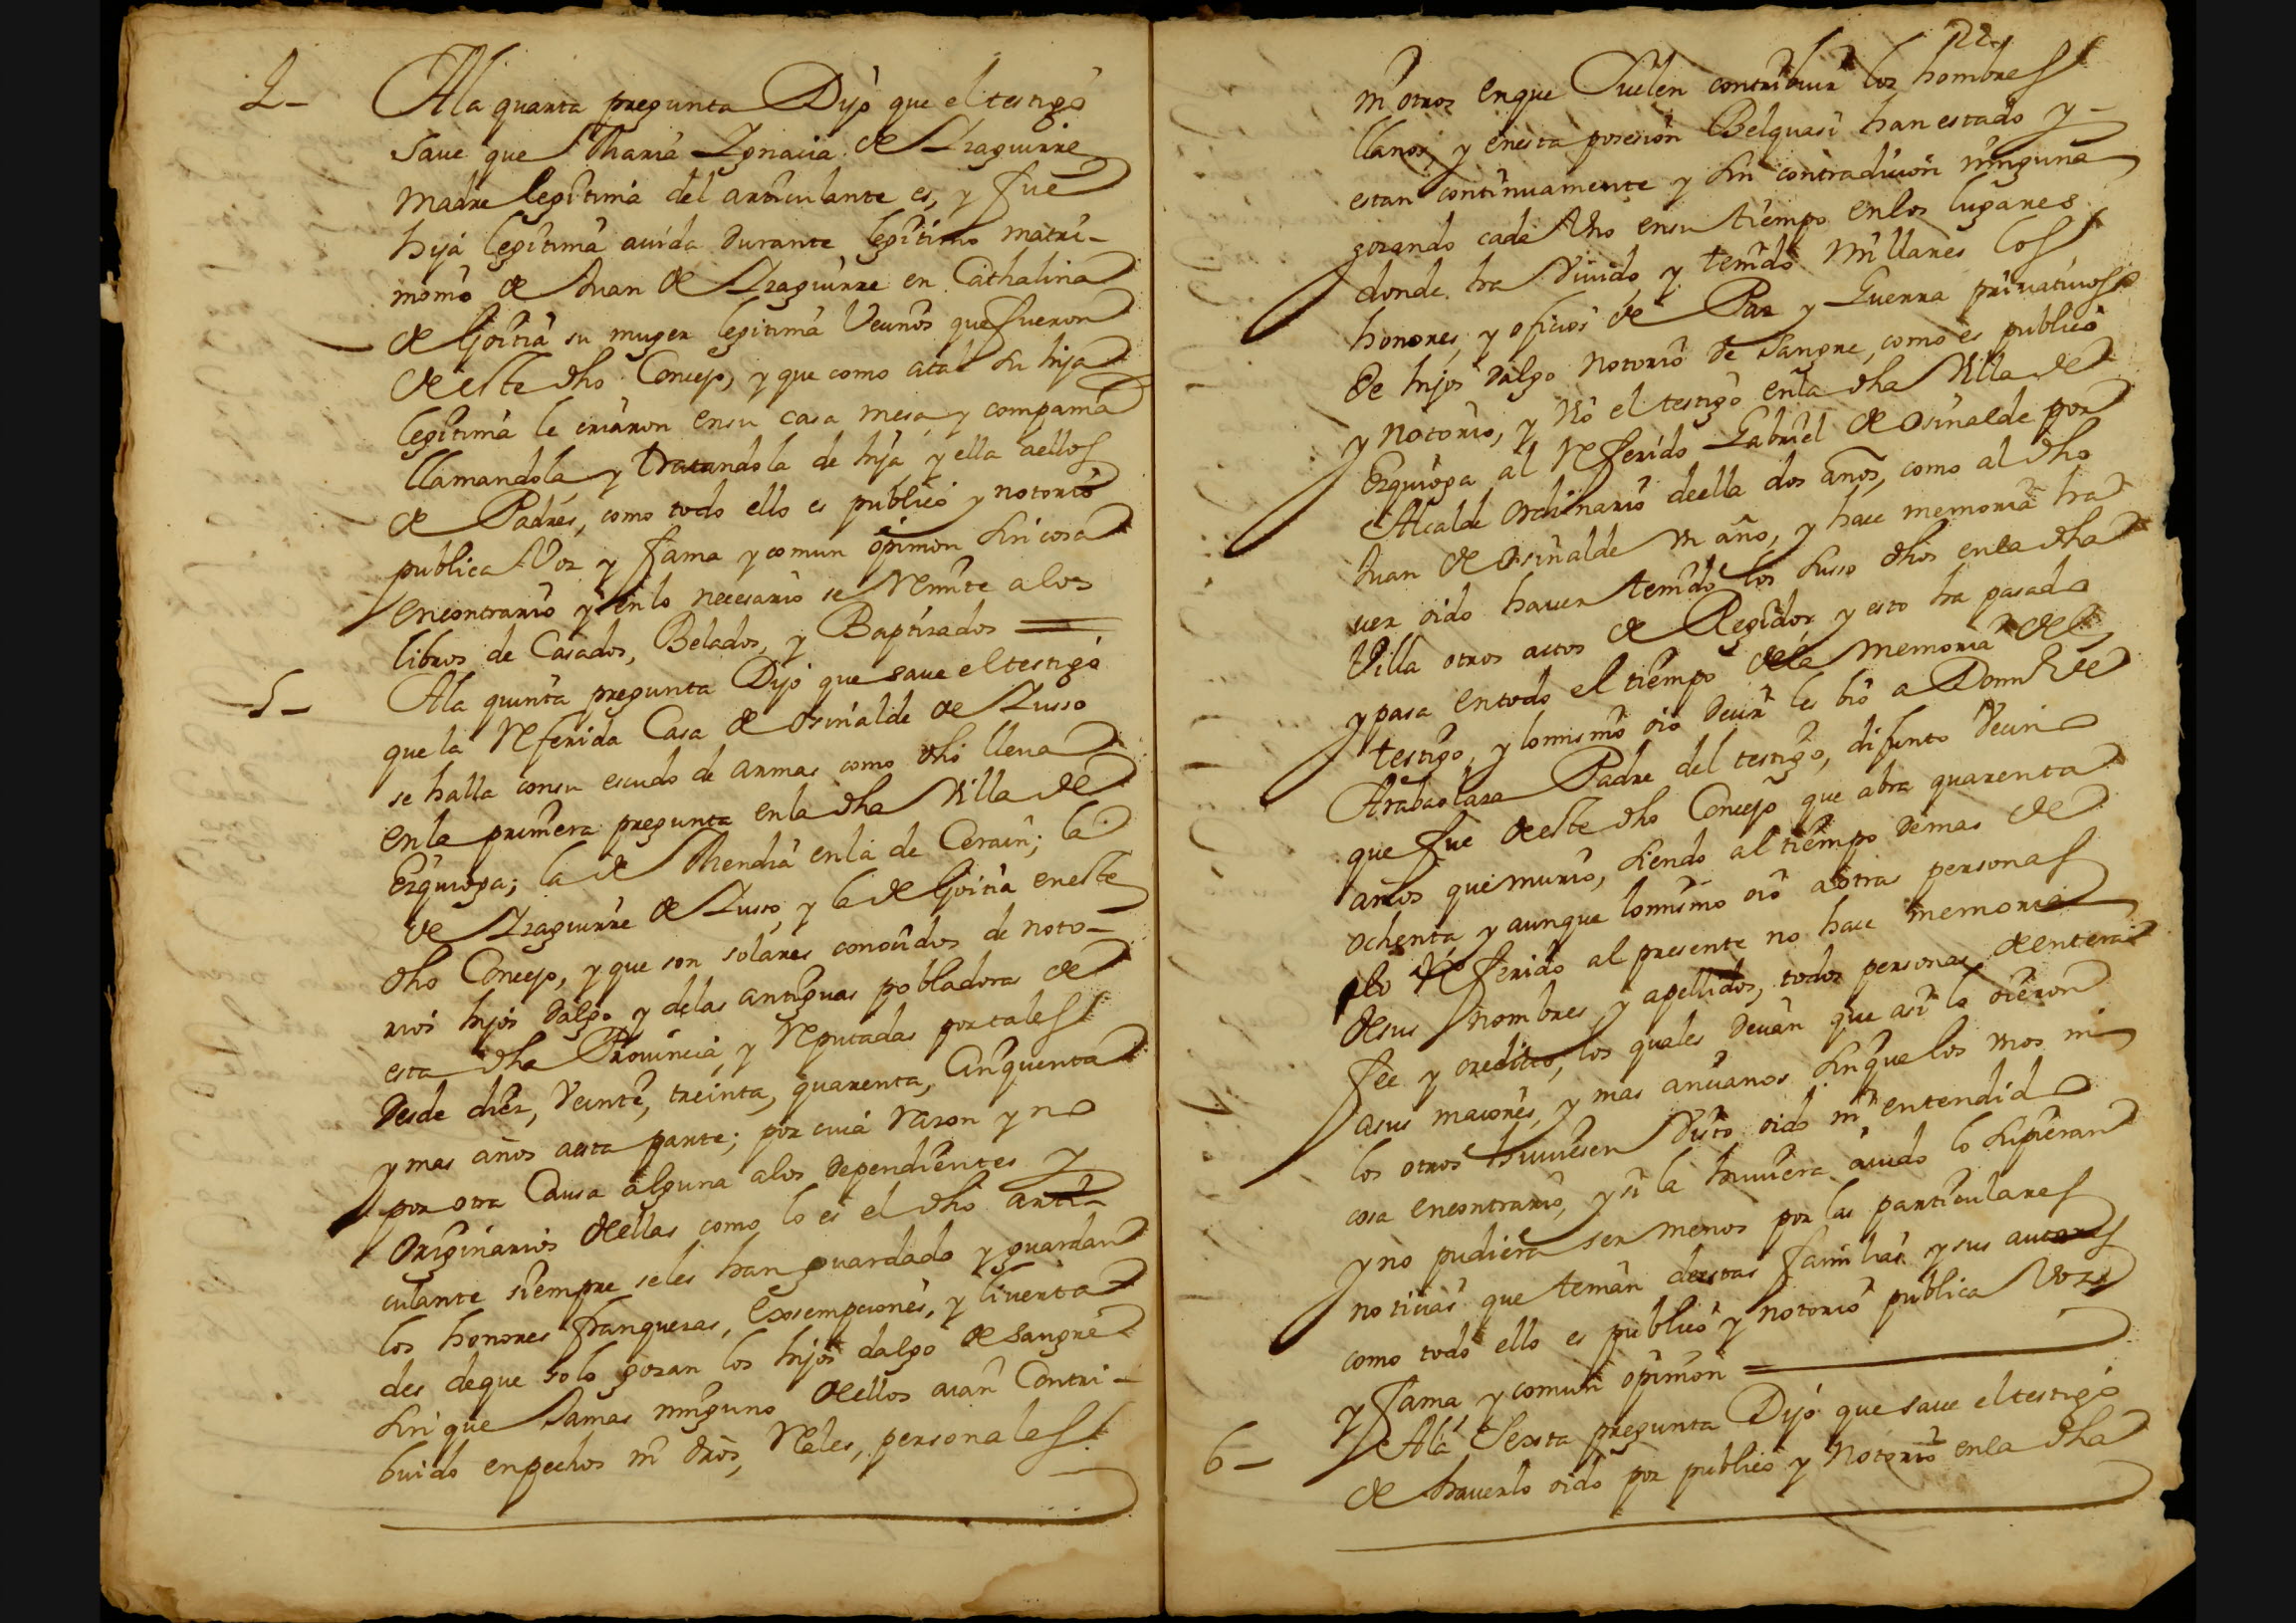 4_
A la quarta pregunta Dijo que el testigo
save que Maria Ignacia de Izaguirre
madre legitima del articulante es, y fue
hija legitima avida durante legitimo matri-
monio de Juan de Izaguirre en Cathalina
de Goitia su muger legitima Vecinos que fueron
de este dho Concejo, y que como atal su hija
legitima le criaron ensu casa mesa, y compania
llamandola y tratandola de hija, y ella aellos
de Padres, como todo ello es publico y notorio
publica Voz y fama y comun opinion sin cosa
encontrario y en lo necesario se Remite alos
libros de Casados, Belados, y Baptizados
5_
A la quinta pregunta Dijo que save el testigo
que la Referida Casa de Orinalde de Susso
se halla consu escudo de armas como dho lleva
en la primera pregunta en la dha Villa de
Ezquioga; la de Mendia en la de Cerain; la
de Izaguirre de Susso, y la de Goitia en este
dho Concejo, y que son solares conocidos de noto-
rios hijos dalgo y delas antiguas pobladoras de
esta dha Provincia, y Reputadas por tales
Desde diez, Veinte, treinta, quarenta, Cinquenta
y mas años aesta parte; por cuia Razon y no
por otra Causa alguna alos Dependientes y
Originarios de ellas como lo es el dho arti-
culante siempre seles han guardado y guardan
los honores franquezas, Exsempciones, y liverta
des deque solo gozan los hijos dalgo de sangre
sin que Jamas ninguno de ellos aian Contri-
buido enpechos ni dros, Reales, personales
22
ni otros enque Suelen contribuir los hombres
llanos, y enesta posesion Belquasi han estado y-
estan continuamente y sin contradicion ninguna
gozando cada Uno ensu tiempo en los lugares
donde ha vivido, y tenido Millares los
honores, y oficios de Paz y Guerra privativos
de hijos dalgo notorio de sangre, como es publico
y notorio, y Vio el testigo en la dha Villa de
Ezquioga al Referido Gabriel de Orinalde por
Alcalde Ordinario de ella dos años, como al dho
Juan de Orinalde un año, y hace memoria ha
ver oido haver tenido los susso dhos en la dha
Villa otros actos de Regidor, y esto ha pasado
y pasa entodo el tiempo dela memoria del
testigo, y lo mismo oio decir les vio a Domingo de
Arabaolaza Padre del testigo, difunto Vecino
que fue de este dho Concejo que abra quarenta
años que murio, siendo al tiempo demas de
ochenta y aunque lo mismo oio aotras personas
lo Referido al presente no hace memoria
desus nombres y apellidos, todos personas de entera
fee y credito, los quales Decian que asi lo vieron
asus maiores, y mas ancianos sin que los unos ni
los otros huviesen Visto oido ni entendido
cosa encontrario, y si la huviera avido lo supieran
y no pudiera ser menos por las particulares
noticias que tenian de estas familias y sus autores
como todo ello es publico y notorio publica Voz
y fama y comun opinion
6_
A la Sexta pregunta Dijo que save el testigo
de haverlo oido por publico y notorio en la dha